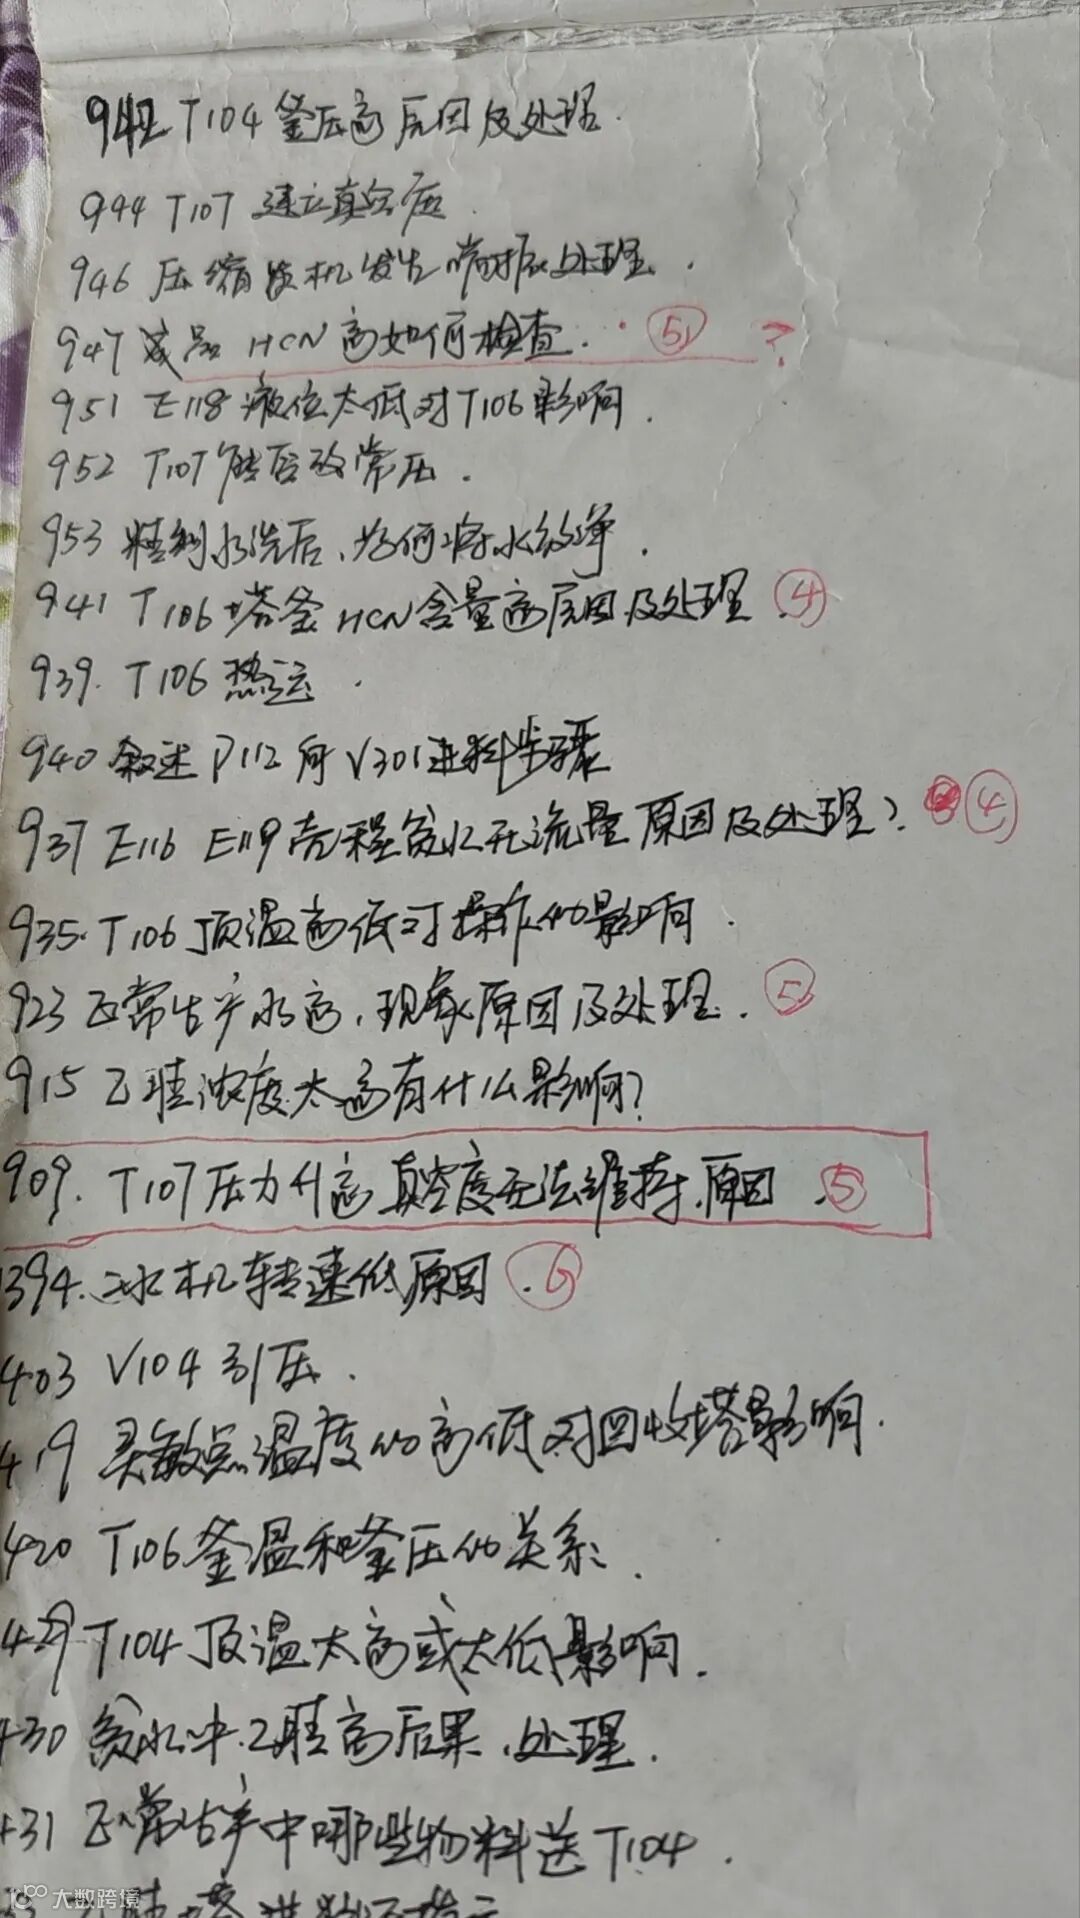 942 T104釜压高原因及处理.
944 T107 建立真空后.
946 压缩机发生喘振处理.
947 成品 HCN高如何检查. ⑤ ?
951 E118液位太低对T106影响.
952 T107转后改常压.
953 精制水洗后、为何将水放净.
941 T106塔釜HCN含量高原因及处理 ④
939. T106热运.
940 叙述P112向V301进料步骤
937 E116 E119壳程贫水无流量原因及处理? ④
935. T106顶温高低对操作的影响.
923 正常生产水高、现象原因及处理. ⑤
915 乙腈浓度太高有什么影响?
909. T107压力升高真空度无法维持.原因. ⑤
1394. 冰机转速低原因. ⑥
403 V104引压.
419 灵敏点温度的高低对回收塔影响.
420 T106釜温和釜压的关系.
429 T104顶温太高或太低影响.
430 贫水中乙腈高后果、处理.
431 正常生产中哪些物料送T104.
大数跨境